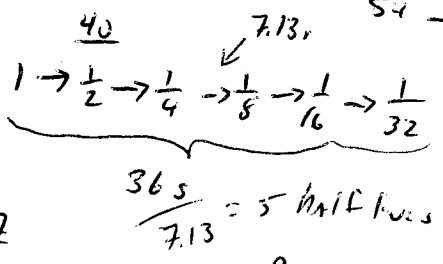 40
7.13
1 → 1/2 → 1/4 → 1/8 → 1/16 → 1/32
36 s / 7.13 = 5 half lives